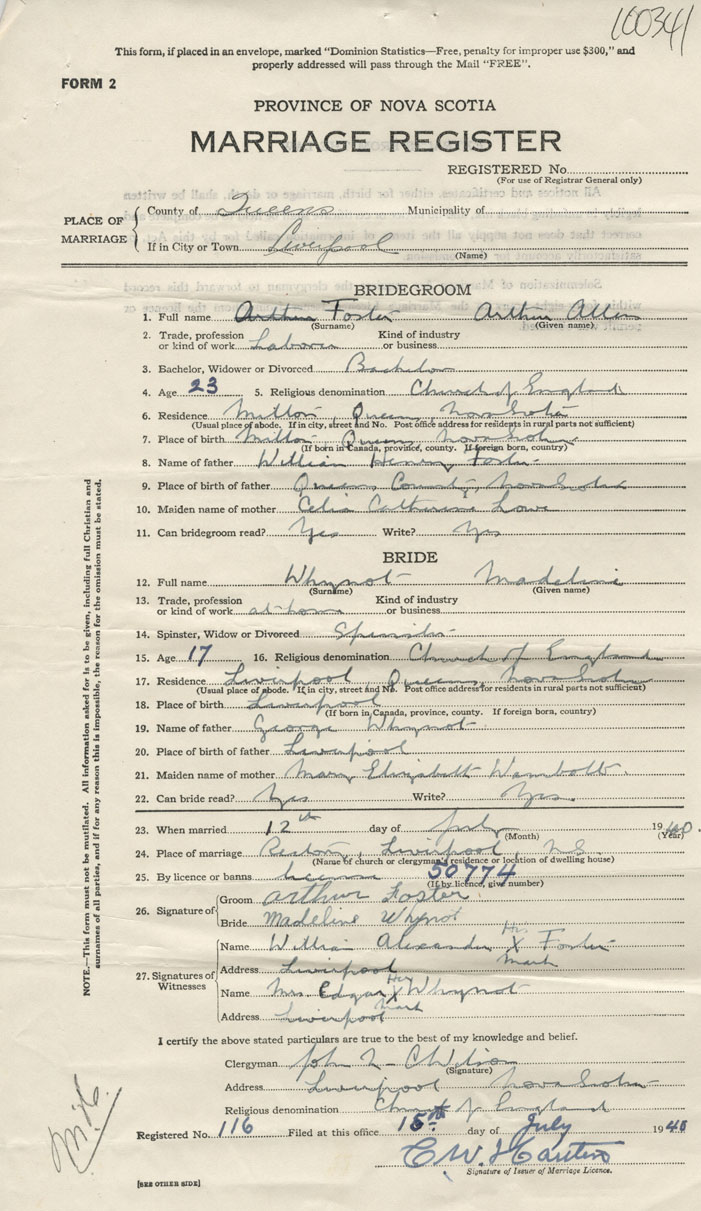 100341
This form, if placed in an envelope, marked "Dominion Statistics—Free, penalty for improper use $300," and
properly addressed will pass through the Mail "FREE".
FORM 2
PROVINCE OF NOVA SCOTIA
MARRIAGE REGISTER
REGISTERED No.
(For use of Registrar General only)
PLACE OF MARRIAGE { County of Queens Municipality of
If in City or Town Liverpool
(Name)
BRIDEGROOM
1. Full name Foster Arthur Allen
(Surname) (Given name)
2. Trade, profession or kind of work Laborer Kind of industry or business
3. Bachelor, Widower or Divorced Bachelor
4. Age 23 5. Religious denomination Church of England
6. Residence Milton, Queens, Nova Scotia
(Usual place of abode. If in city, street and No. Post office address for residents in rural parts not sufficient)
7. Place of birth Milton Queens Nova Scotia
(If born in Canada, province, county. If foreign born, country)
8. Name of father William Henry Foster
9. Place of birth of father Queens County, Nova Scotia
10. Maiden name of mother Celia Catherine Lowe
11. Can bridegroom read? Yes Write? Yes
BRIDE
12. Full name Whynot Madeline
(Surname) (Given name)
13. Trade, profession or kind of work at-home Kind of industry or business
14. Spinster, Widow or Divorced Spinster
15. Age 17 16. Religious denomination Church of England
17. Residence Liverpool, Queens, Nova Scotia
(Usual place of abode. If in city, street and No. Post office address for residents in rural parts not sufficient)
18. Place of birth Liverpool
(If born in Canada, province, county. If foreign born, country)
19. Name of father George Whynot
20. Place of birth of father Liverpool
21. Maiden name of mother Mary Elizabeth Wambolt
22. Can bride read? Yes Write? Yes.
23. When married 12th day of July 1940.
(Month) (Year)
24. Place of marriage Rectory, Liverpool, N.S.
(Name of church or clergyman's residence or location of dwelling house)
25. By licence or banns licence 50774
(If by licence, give number)
26. Signature of { Groom Arthur Foster
Bride Madeline Whynot
27. Signatures of Witnesses { Name William Alexander His X Mark Foster
Address Liverpool
Name Mrs. Edgar Her X Mark Whynot
Address Liverpool
I certify the above stated particulars are true to the best of my knowledge and belief.
Clergyman John
(Signature)
Address Liverpool Nova Scotia
Religious denomination Church of England
Registered No. 116 Filed at this office 15th day of July 1940
C.W.
Signature of Issuer of Marriage Licence.
[SEE OTHER SIDE]
NOTE.—This form must not be mutilated. All information asked for is to be given, including full Christian and
surnames of all parties, and if for any reason this is impossible, the reason for the omission must be stated.